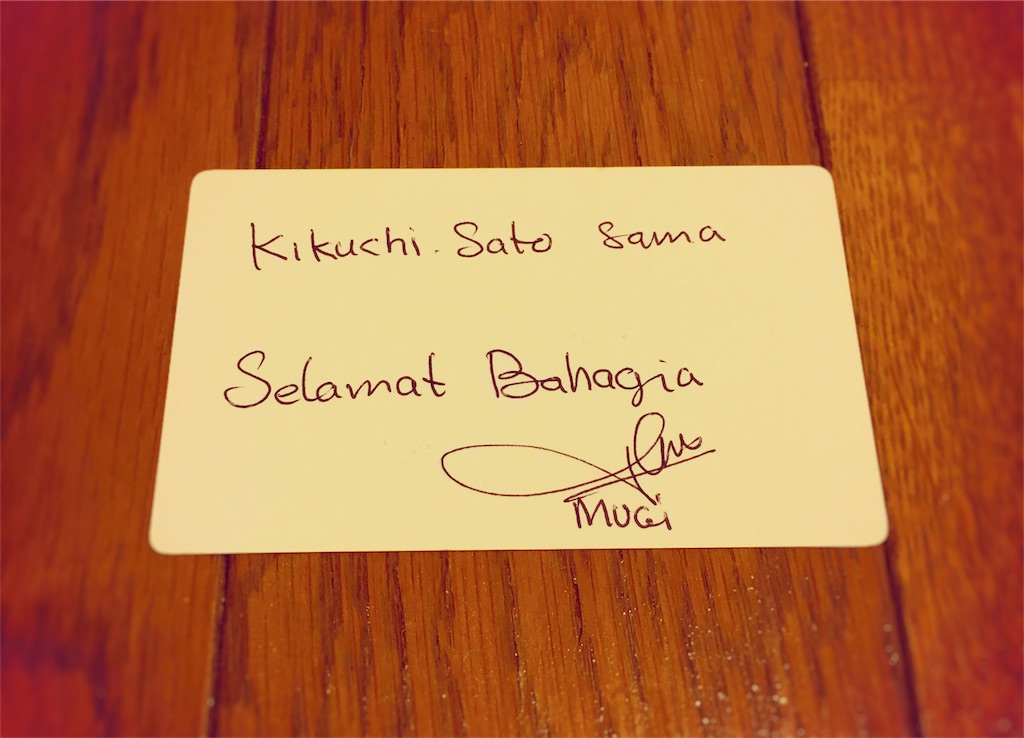 Kikuchi. Sato sama
Selamat Bahagia
MUGi